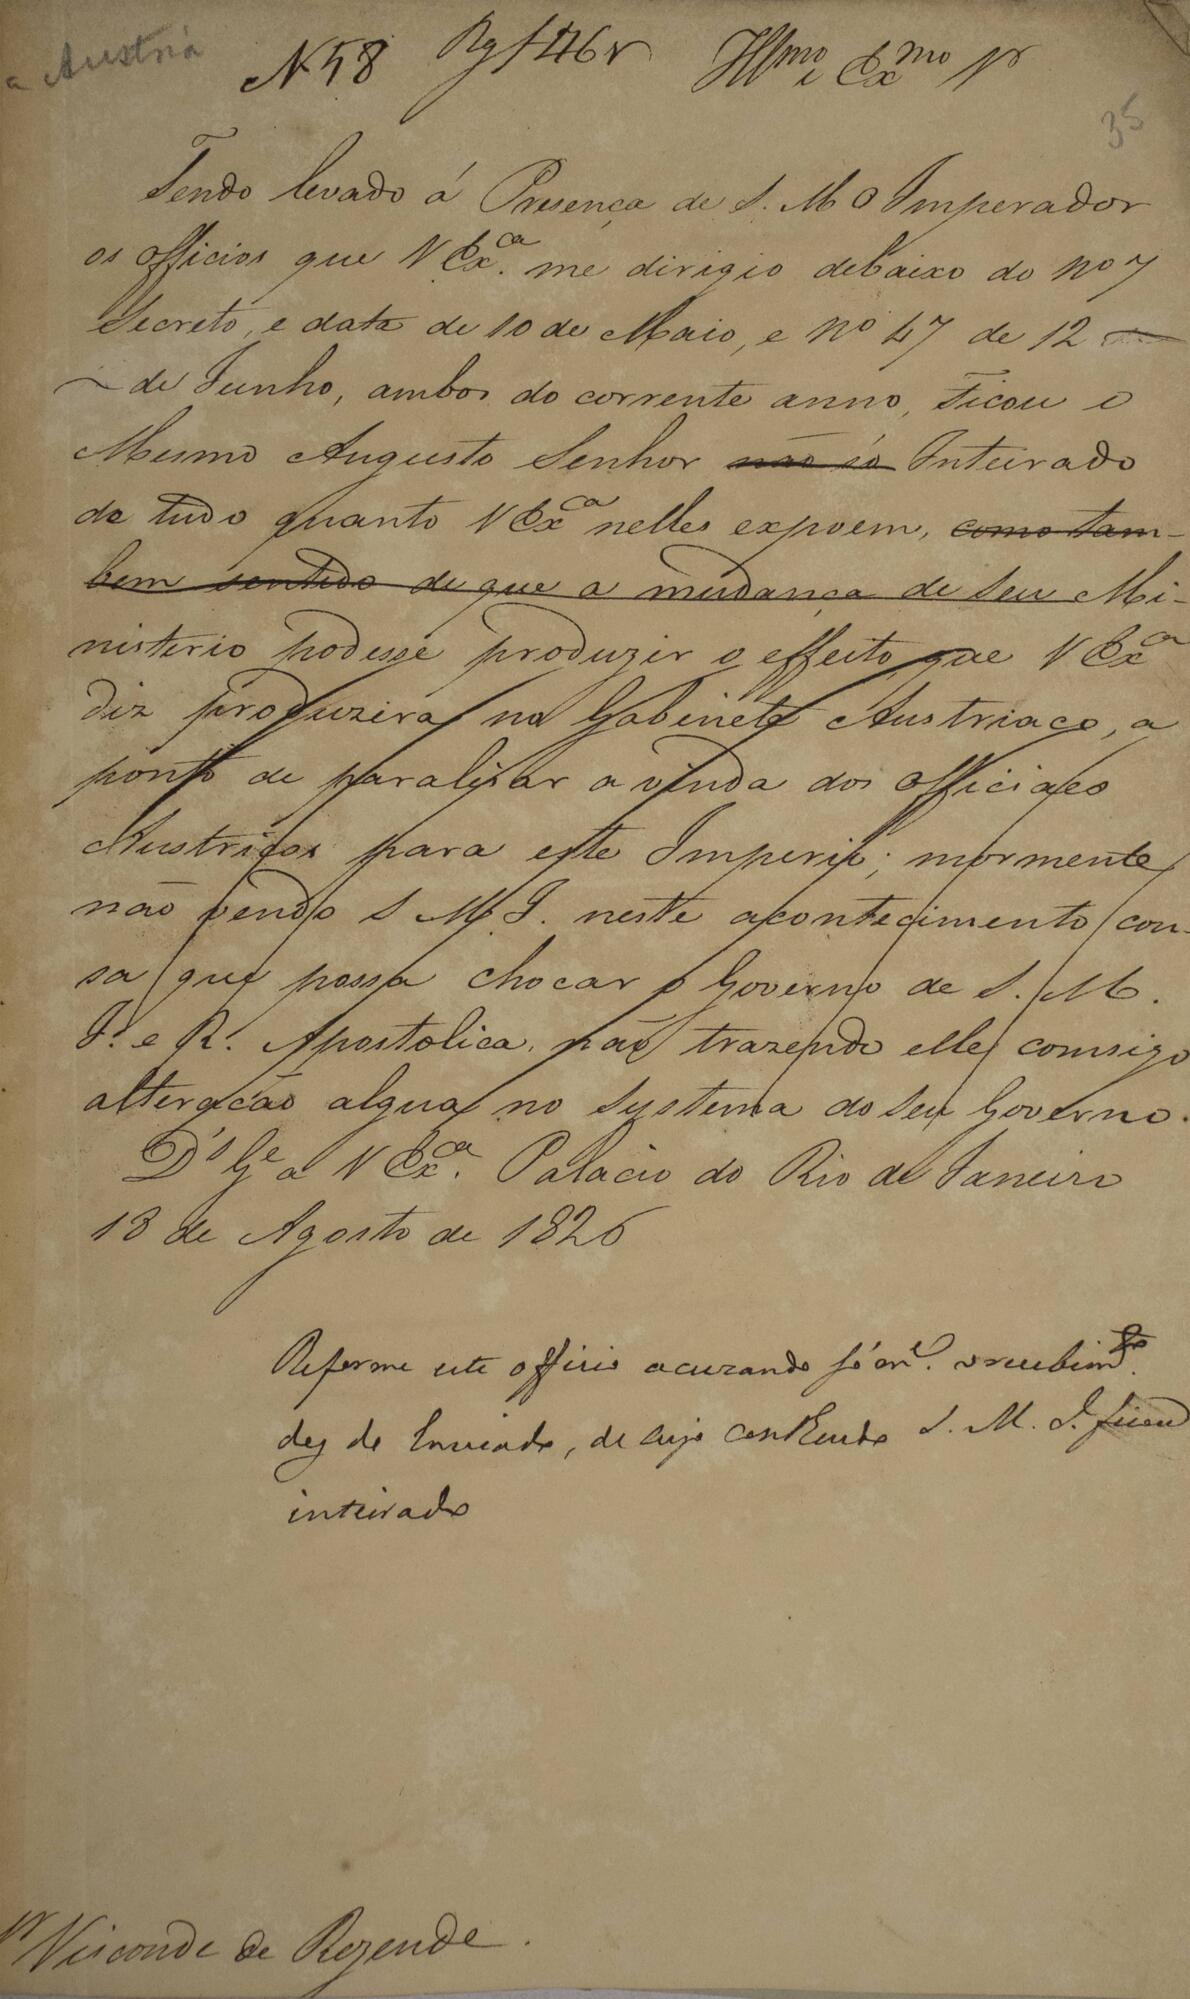 a Austria
N 58 Rg f 46v Illmo e Exmo Sr
35
Tendo levado á Presença de S. M. O Imperador
os officios que V Exca. me dirigio debaixo do no 7
Secreto, e data de 10 de Maio, e no 47 de 12
de Junho, ambos do corrente anno, Ficou o
Mesmo Augusto Senhor não só Inteirado
de tudo quanto V Exca nelles expoem, como tam-
bem sentido de que a mudança de Seu Mi-
nisterio podesse produzir o effeito que V Exca
diz produzira no Gabinete Austriaco, a
ponto de paralisar a vinda dos officiaes
Austricos para este Imperio; mormente
não vendo S M I. neste acontecimento cou-
sa que possa chocar o Governo de S. M.
I. e R. Apostolica, não trazendo elle comsigo
alteração algua no systema do seu Governo.
D's Ge a V Exca. Palacio do Rio de Janeiro
18 de Agosto de 1826
Reforme este officio acuzando só o recebimto.
de Enviado, de cujo contheudo S. M. I. ficou
inteirado
Sr Visconde de Rezende.